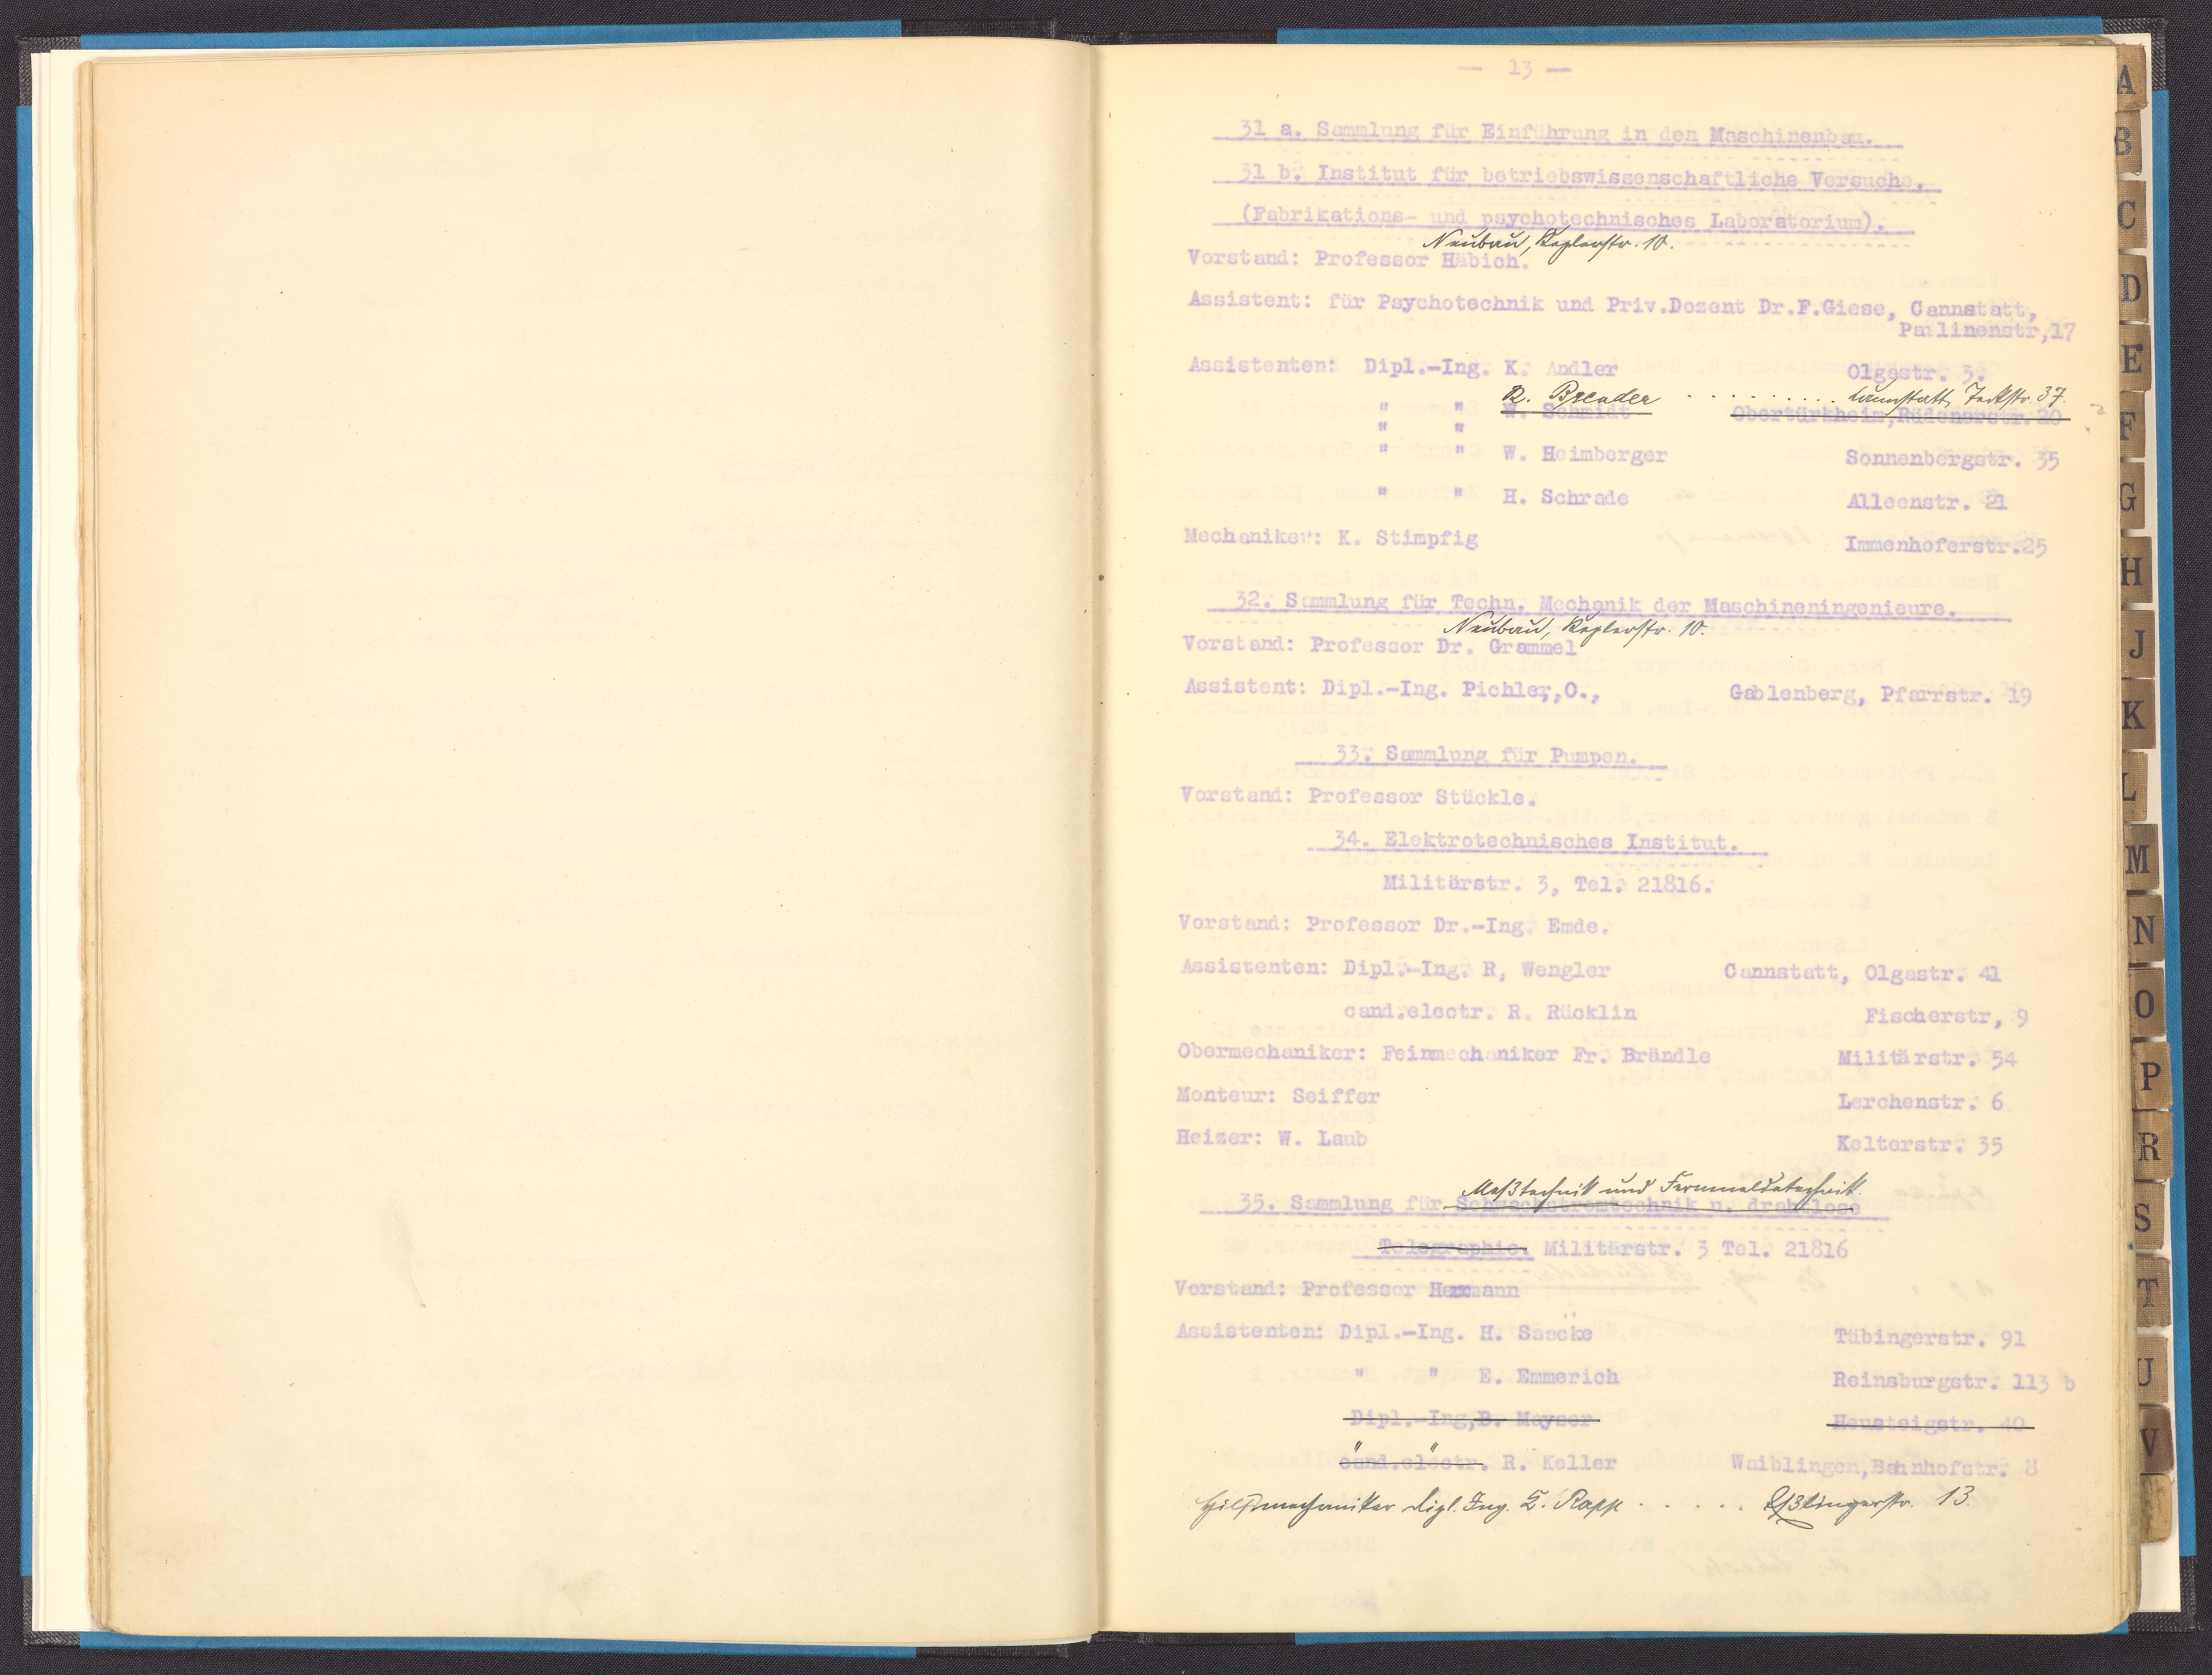 — 13 —
31 a. Sammlung für Einführung in den Maschinenbau.
31 b. Institut für betriebswissenschaftliche Versuche,
(Fabrikations- und psychotechnisches Laboratorium).
Neubau, Keplerstr. 10.
Vorstand: Professor Häbich.
Assistent: für Psychotechnik und Priv.Dozent Dr.F.Giese, Cannstatt,
Paulinenstr,17
Assistenten: Dipl.-Ing. K. Andler Olgastr. 3.
R. Brender . . . . . . . . . . Cannstatt, Teckstr. 37.
" " W. Schmidt Obertürkheim,Rüdenerstr.20
" "
" " W. Heimberger Sonnenbergstr. 35
" " H. Schrade Alleenstr. 21
Mechaniker: K. Stimpfig Immenhoferstr.25
32. Sammlung für Techn. Mechanik der Maschineningenieure.
Neubau, Keplerstr. 10.
Vorstand: Professor Dr. Grammel
Assistent: Dipl.-Ing. Pichler,O., Gablenberg, Pfarrstr. 19
33. Sammlung für Pumpen.
Vorstand: Professor Stückle.
34. Elektrotechnisches Institut.
Militärstr. 3, Tel. 21816.
Vorstand: Professor Dr.-Ing. Emde.
Assistenten: Dipl.-Ing. R, Wengler Cannstatt, Olgastr. 41
cand.electr. R. Rücklin Fischerstr, 9
Obermechaniker: Feinmechaniker Fr. Brändle Militärstr. 54
Monteur: Seiffer Lerchenstr. 6
Heizer: W. Laub Kelterstr. 35
Meßtechnik und Fernmeldetechnik.
35. Sammlung für Schwachstromtechnik u. drahtlose
Telegraphie. Militärstr. 3 Tel. 21816
Vorstand: Professor Herrmann
Assistenten: Dipl.-Ing. H. Saacke Tübingerstr. 91
" " E. Emmerich Reinsburgstr. 113 b
Dipl.-Ing,B. Meyser Heusteigstr. 40
" "
cand.electr. R. Keller Waiblingen,Bahnhofstr. 8
Hilfsmechaniker Dipl. Ing. E. Rapp . . . . . Eßlingerstr. 13.
A
B
C
D
E
F
G
H
J
K
L
M
N
O
P
R
S
T
U
V